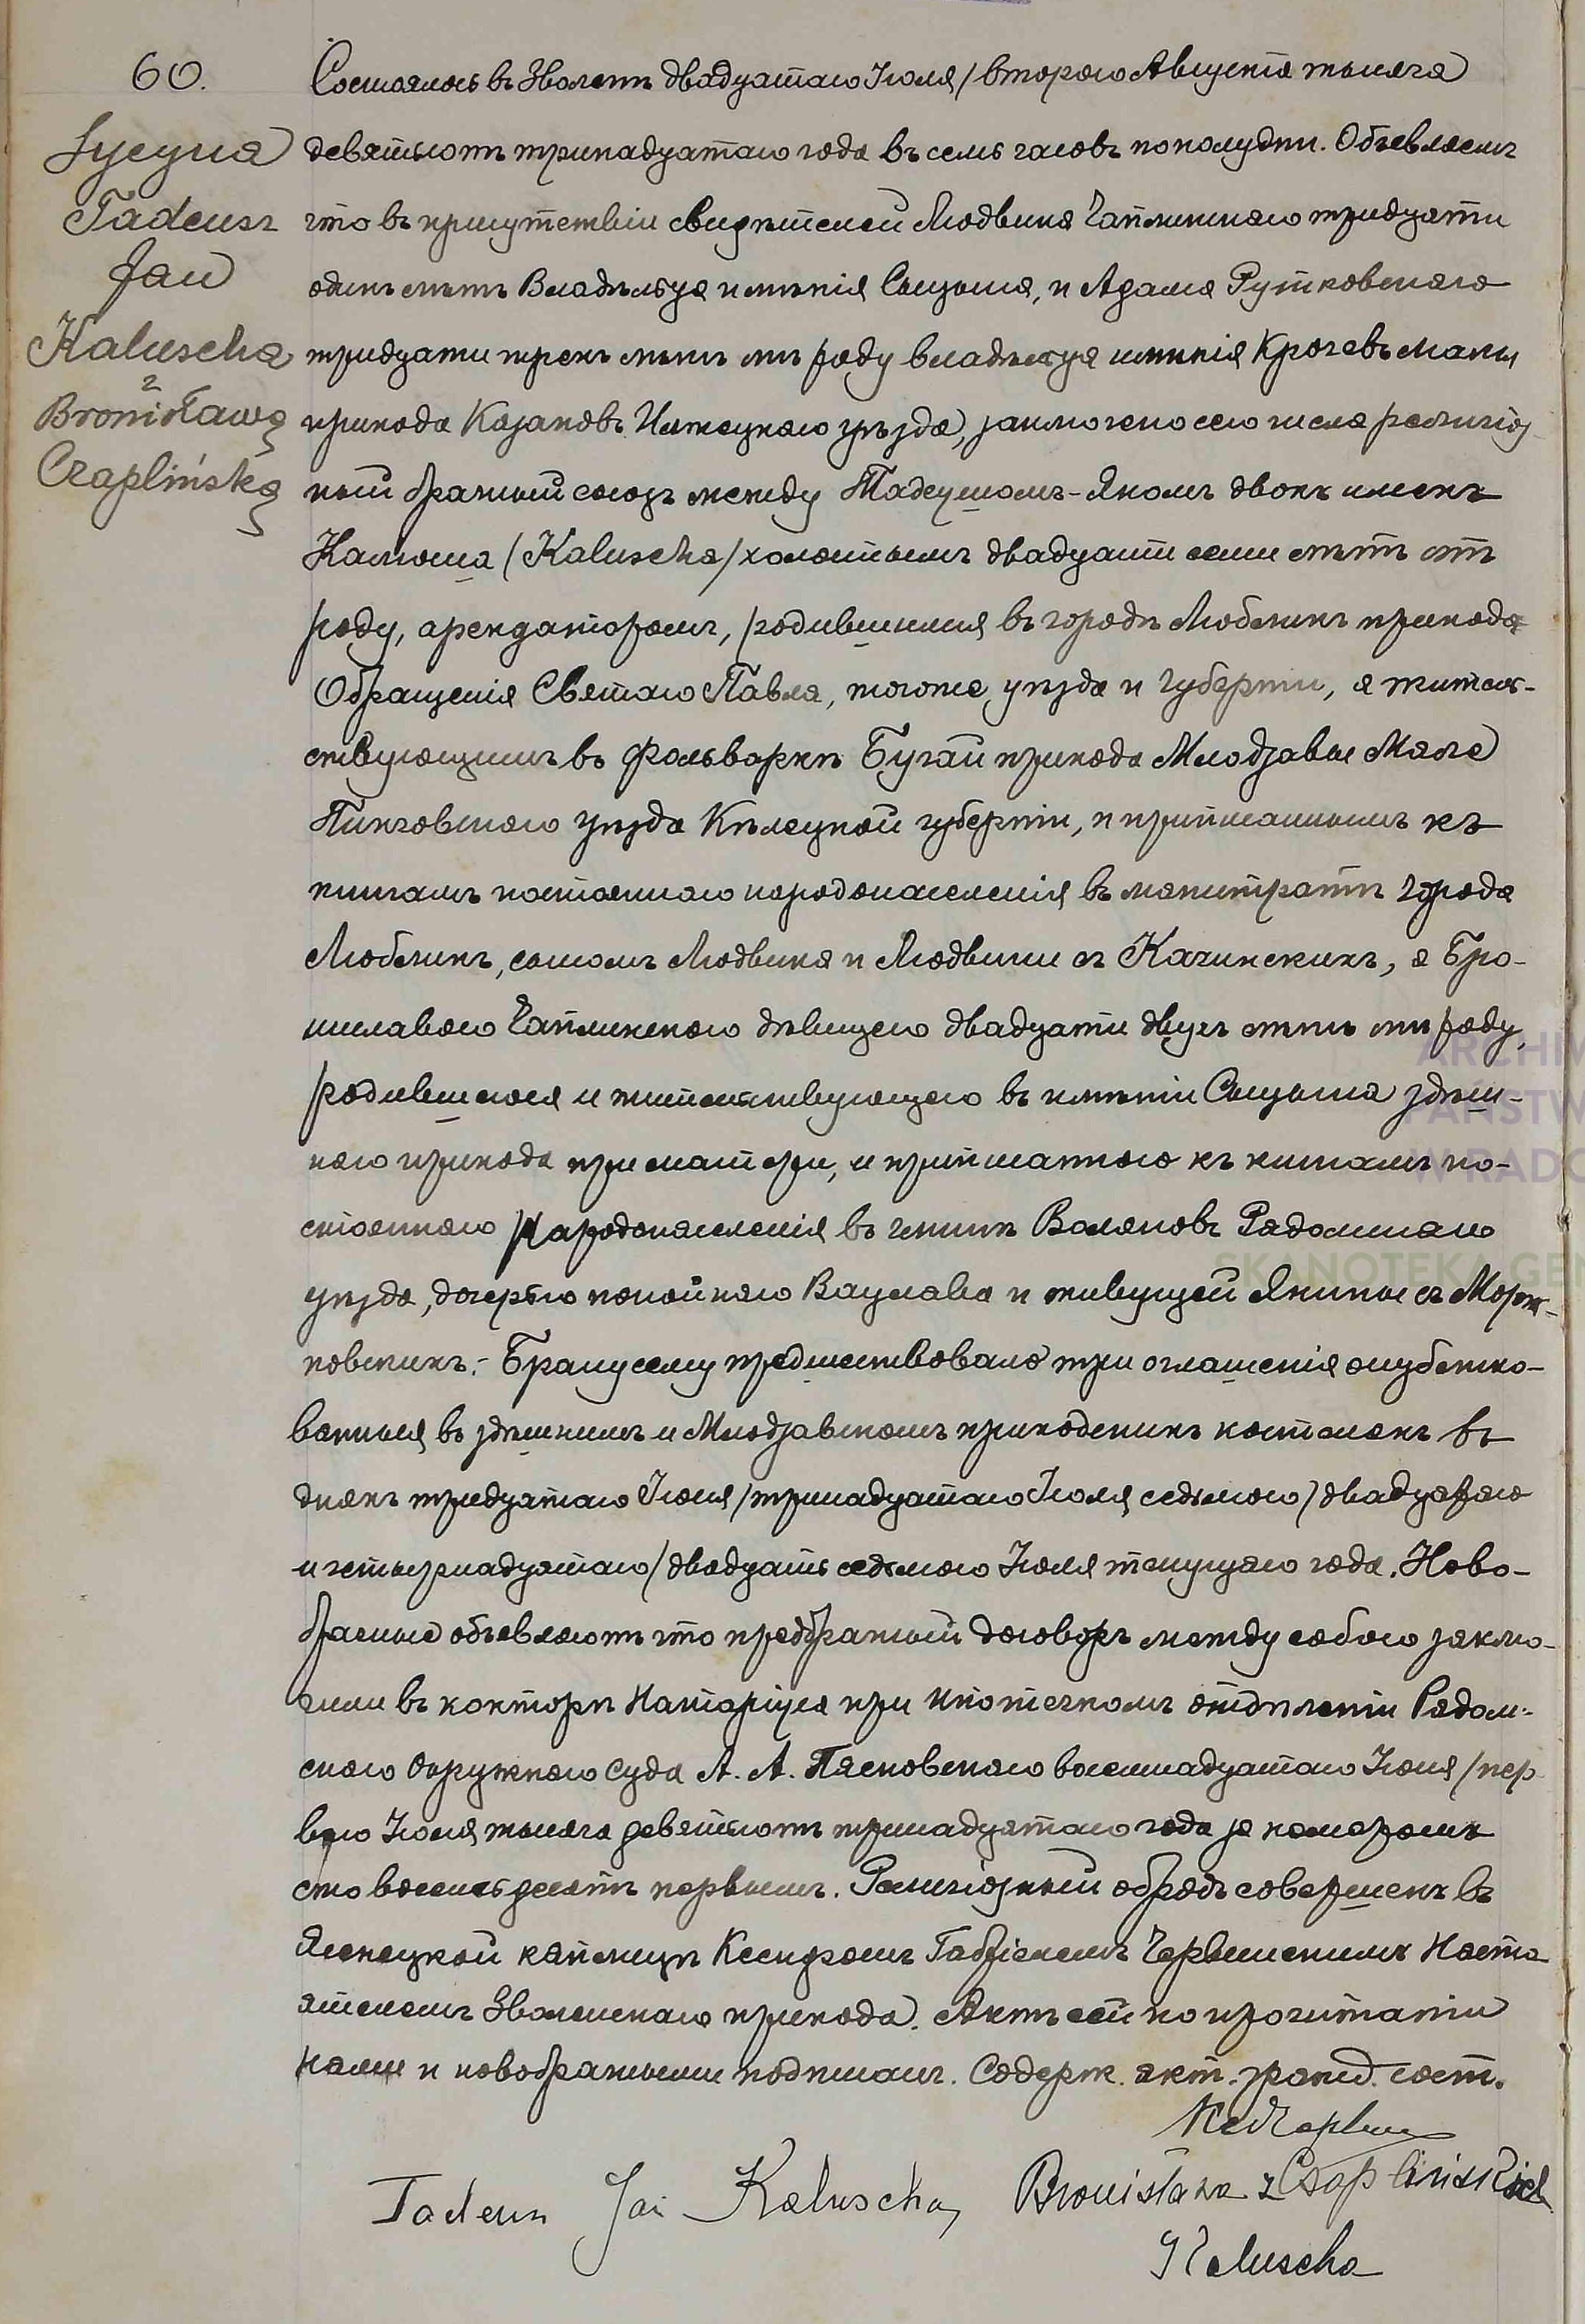 60.
Sycyna
Tadeusz
Jan
Kaluscha
z
Bronisławą
Czaplińską
Состоялось въ Зволенѣ двадцатаго Іюля / второго Августа тысяча
девятьсотъ тринадцатаго года въ семь часовъ пополудни. Объявляемъ
что въ присутствіи свидѣтелей Людвика Чаплинскаго тридцати
одинъ лѣтъ Владѣльца имѣнія Сыцына, и Адама Рутковскаго
тридцати трехъ лѣтъ отъ роду владѣльца имѣнія Крочевъ малы
прихода Казановъ Илжецкаго уѣзда, заключено сего числа религіоз-
ный брачный союзъ между Тадеушомъ-Яномъ двохъ именъ
Калюша (Kaluscha) холостымъ двадцати семи лѣтъ отъ
роду, арендаторомъ, родившимся въ городѣ Люблинѣ прихода
Обращенія Святаго Павла, тогоже уѣзда и губерніи, а житель-
ствующимъ въ фольваркѣ Бугай прихода Млодзавы Мале
Пинчовскаго уѣзда Кѣлецкой губерніи, и приписаннымъ къ
книгамъ постояннаго народонаселенія въ магистратѣ города
Люблинъ, сыномъ Людвика и Людвики съ Качинскихъ, а Бро-
ниславою Чаплинскою дѣвицею двадцати двухъ лѣтъ отъ роду,
родившеюся и жительствующею въ имѣніи Сыцына здѣш-
няго прихода при матери, и приписанною къ книгамъ по-
стояннаго народонаселенія въ гминѣ Воляновъ Радомскаго
уѣзда, дочерью покойнаго Вацлава и живущей Янины съ Морж-
ковскихъ.- Браку сему предшествовало три оглашенія опублико-
ванныя въ здѣшнимъ и Млодзавскомъ приходскихъ костелахъ въ
дняхъ тридцатаго Іюня / тринадцатаго Іюля, седьмого / двадцатаго
и четырнадцатаго / двадцать седьмого Іюля текущаго года. Ново-
брачные объявляютъ что предбрачный договоръ между собою заклю-
чили въ конторѣ Натаріуса при Ипотечномъ отдѣленіи Радом-
скаго Окружнаго суда А. А. Пясковскаго восемнадцатаго Іюня / пер
ваго Іюля тысяча девятьсотъ тринадцатаго года за номеромъ
сто восемьдесятъ первымъ. Религіозный обрядъ совершенъ въ
Ясенецкой каплицѣ Ксендзомъ Габріелемъ Червинскимъ Насто
ятелемъ Зволенскаго прихода. Актъ сей по прочитаніи
нами и новобрачными подписанъ. Содерж. акт. гражд. сост.
Tadeusz Jan Kaluscha, Bronisława z Czaplińskich
Kaluscha